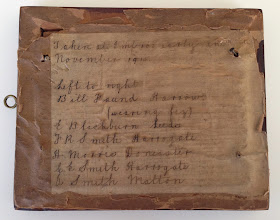 Taken at
November
Left to right
Bill Pound Harrow
(wearing fez)
E Blackburn Leeds
F R Smith Harrogate
A Morris Doncaster
E E Smith Harrogate
E Smitch Melton